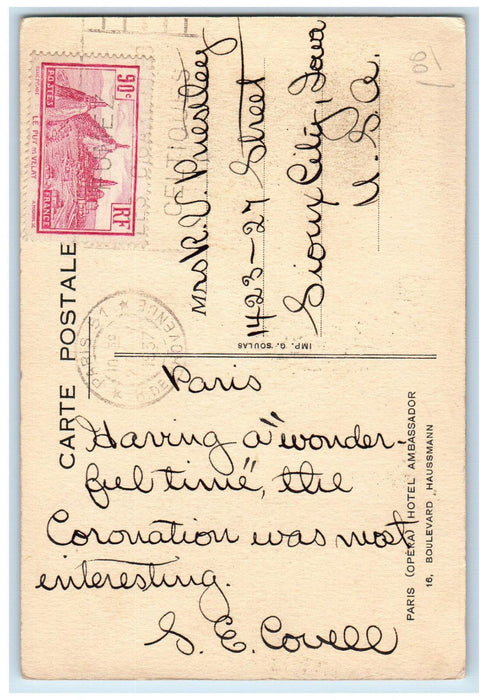 CARTE POSTALE
90c
POSTES
LE PUY EN VELAY
FRANCE
RF
PARIS
PROVENCE
Mrs R. V. Priestley
1423-27 Street
Sioux City, Iowa
U. S. A.
100
IMP. G. SOULAS
Paris
Having a "wonder-
ful time", the
Coronation was most
interesting.
S. E. Covell
PARIS (OPÉRA) HOTEL AMBASSADOR
16, BOULEVARD HAUSSMANN